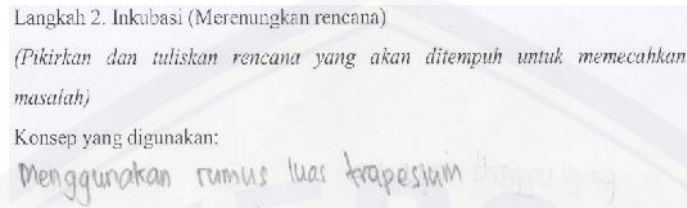 Langkah 2. Inkubasi (Merenungkan rencana)
(Pikirkan dan tuliskan rencana yang akan ditempuh untuk memecahkan
masalah)
Konsep yang digunakan:
Menggunakan rumus luas trapesium